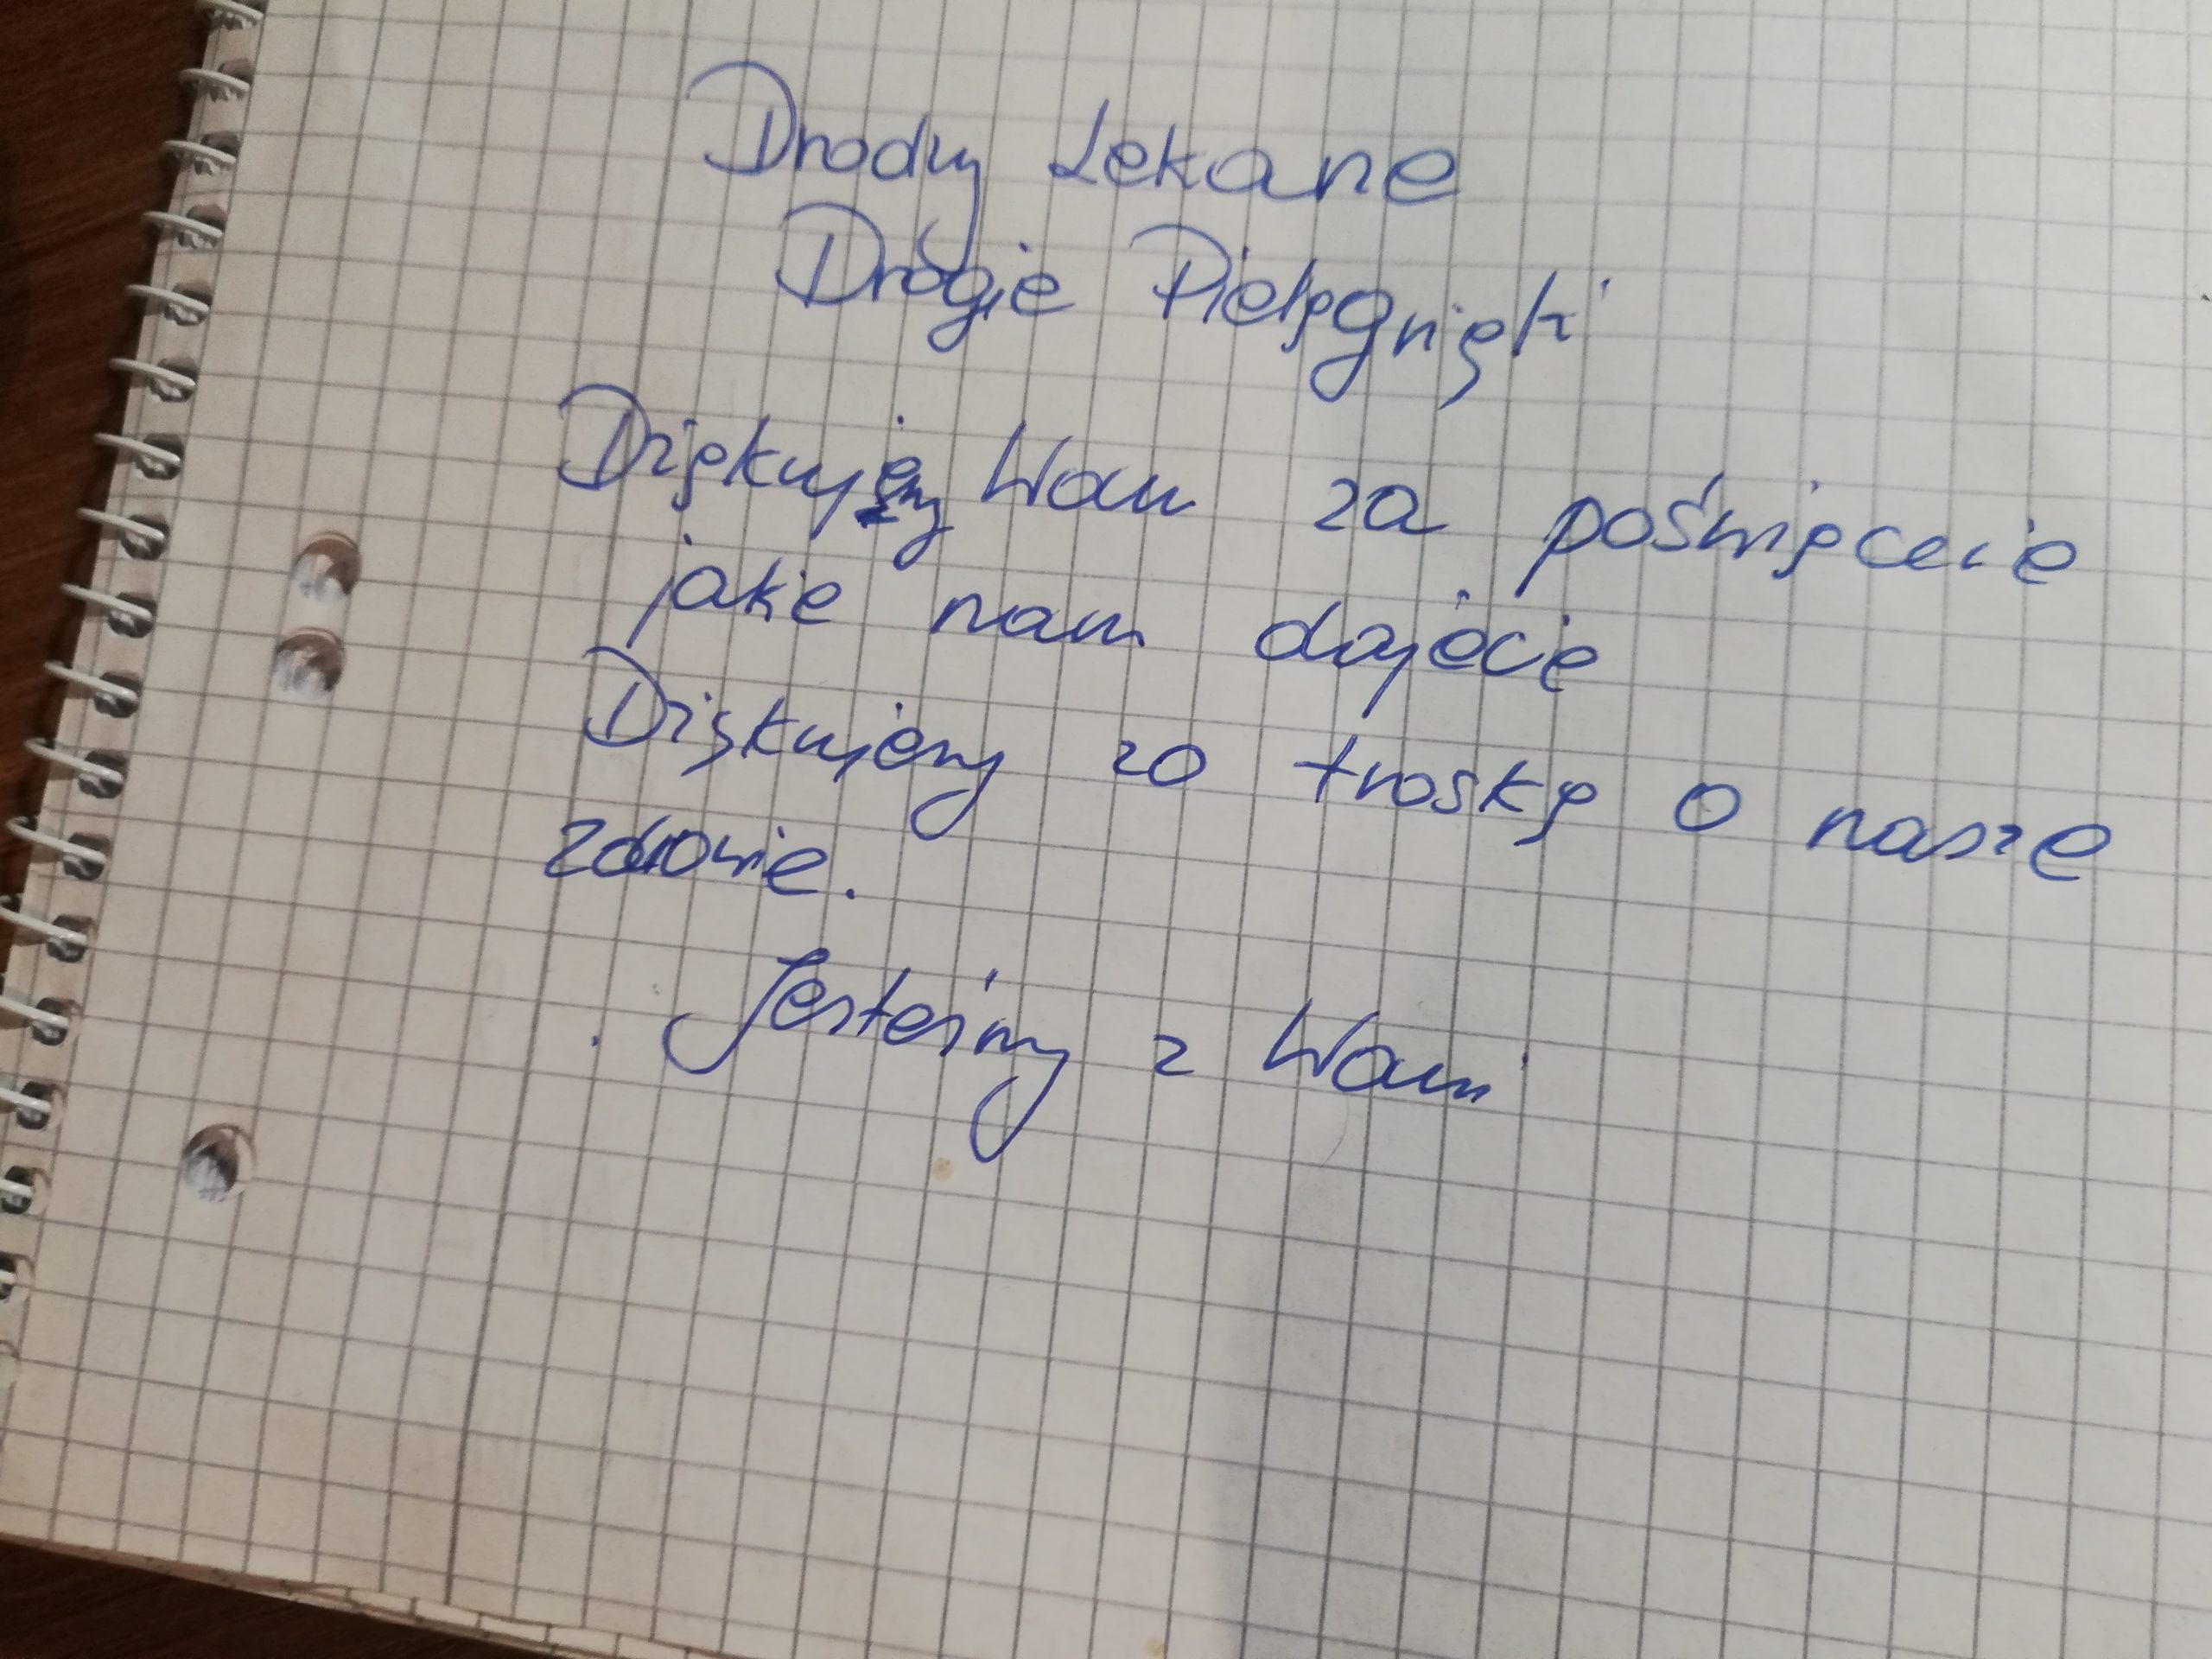 Drodzy Lekarze
Drogie Pielęgnięki
Dziękujemy Wam za poświęcecie
jakie nam dajecie
Dziękujemy za troskę o nasze
zdrowie.
Jesteśmy z Wami